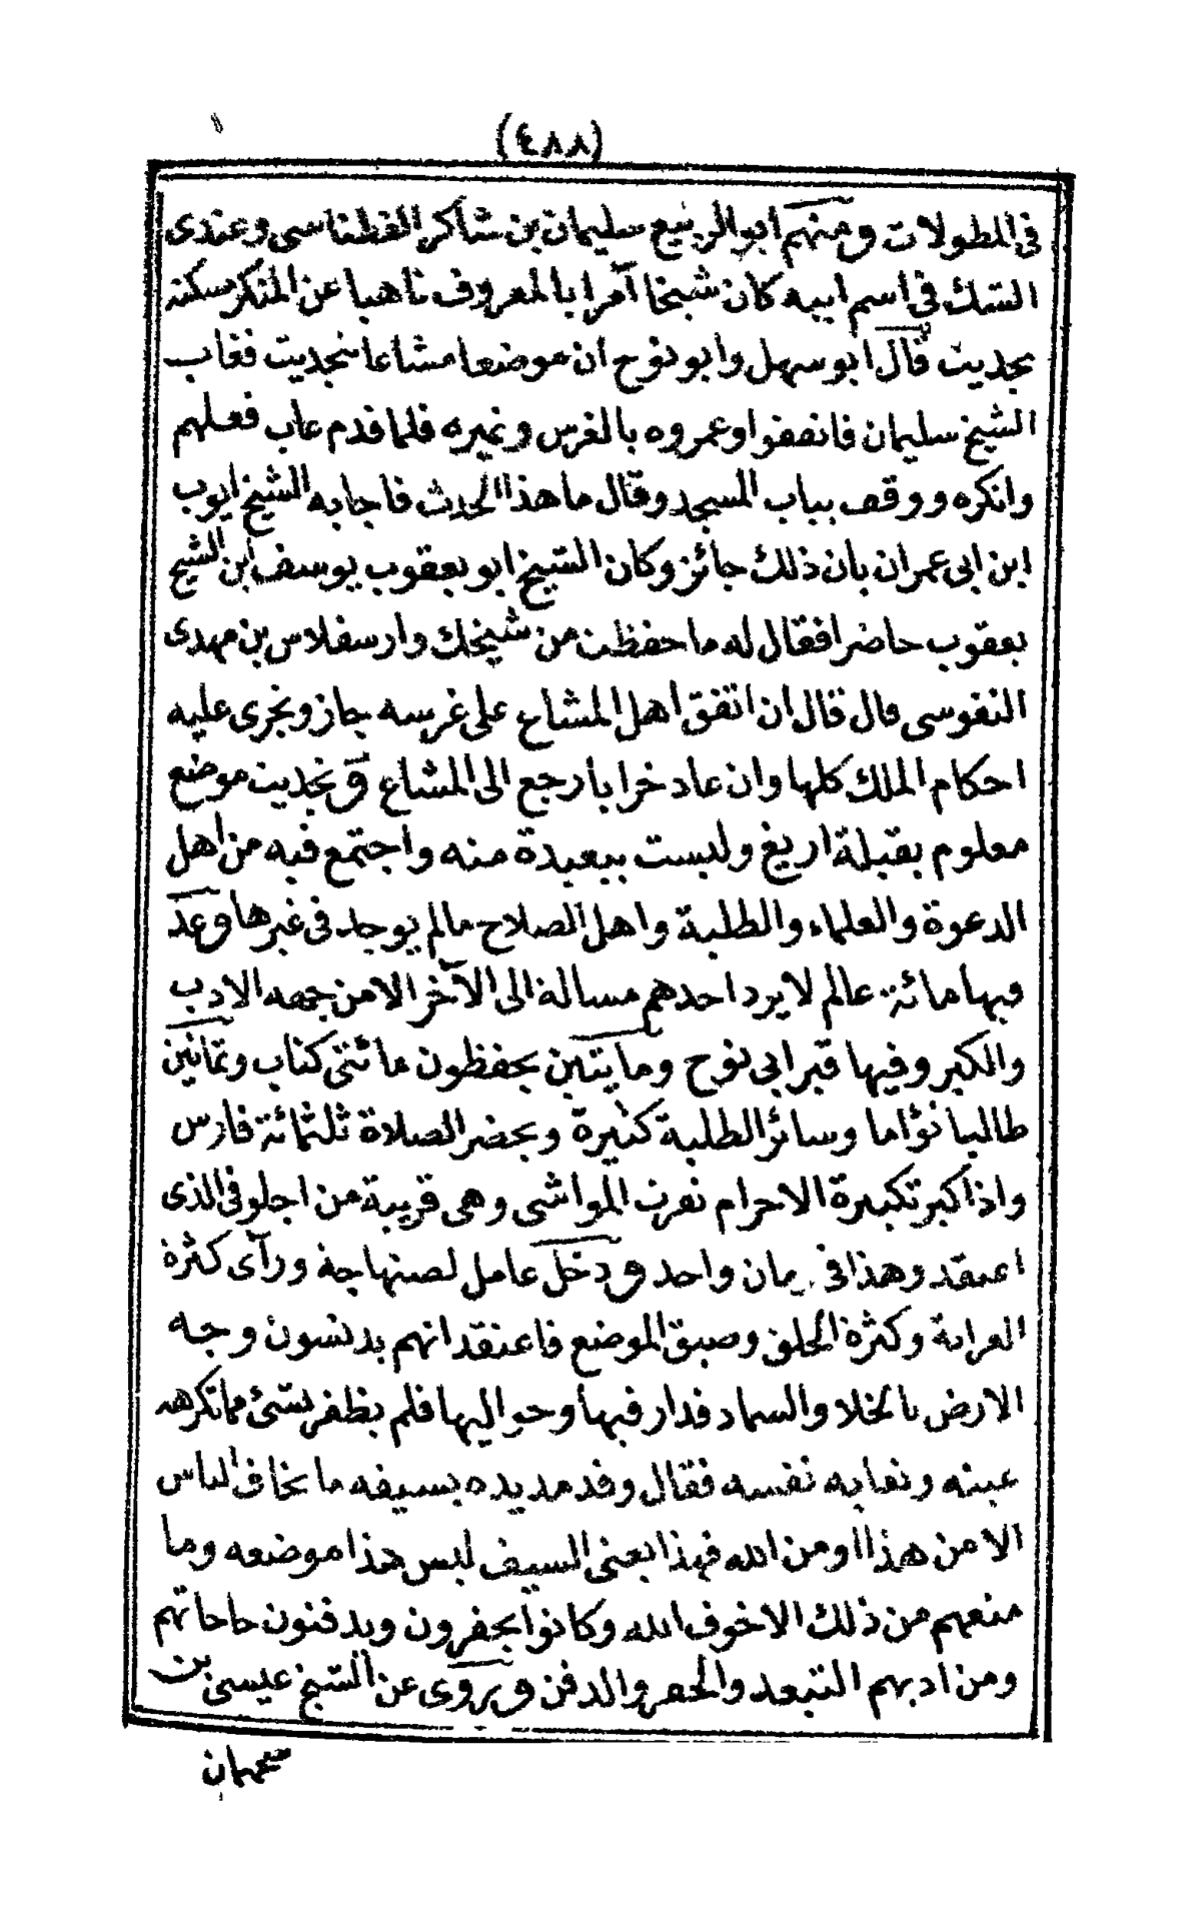 (٤٨٨)
في المطولات ومنهم ابو الربيع سليمان بن شاكر الفطناسي وعندى
الشك في اسم ابيه كان شيخا آمرا بالمعروف ناهيا عن المنكر مسكنه
بجديت قال ابو سهل وابو نوح ان موضعا مشاعا بنجديت فغاب
الشيخ سليمان فاتفقوا وعمروه بالغرس وغيره فلما قدم عاب فعلهم
وانكره ووقف بباب المسجد وقال ما هذا الحدث فاجابه الشيخ ايوب
ابن ابى عمران بان ذلك جائز وكان الشيخ ابو يعقوب يوسف ابن الشيخ
يعقوب حاضرا فقال له ما حفظت من شيخك وارسفلاس بن مهدى
النفوسى قال قال ان اتفق اهل المشاع على غرسه جاز ويجرى عليه
احكام الملك كلها وان عاد خرابا رجع الى المشاع وتجديت موضع
معلوم بقبلة اريغ وليست ببعيدة منه واجتمع فيه من اهل
الدعوة والعلماء والطلبة واهل الصلاح مالم يوجد فى غيرها وعد
فيها مائة عالم لا يرد احدهم مسالة الى الآخر الا من جهه الادب
والكبر وفيها قبر ابى نوح ومايتين يحفظون مائتى كتاب وثمانين
طالبا نؤاما وسائر الطلبة كثيرة ويحضر الصلاة ثلثمائة فارس
واذا كبر تكبيرة الاحرام نفرت المواشى وهى قريبة من اجلو فى الذى
اعتقد وهذا فى زمان واحد ودخل عامل لصنهاجة ورآى كثرة
العزابة وكثرة الخلق وضيق الموضع فاعتقد انهم يدنسون وجه
الارض بالخلا والسماد فدار فيها وحواليها فلم يظفر بشئ مما تكرهه
عينه وتعابه نفسه فقال وقد مد يده بسيفه ما يخاف الناس
الا من هذا او من الله فهذا يعنى السيف ليس هذا موضعه وما
منعهم من ذلك الا خوف الله وكانوا يحفرون ويدفنون حاجاتهم
ومن ادبهم التبعد والحفر والدفن ويروى عن الشيخ عيسى بن